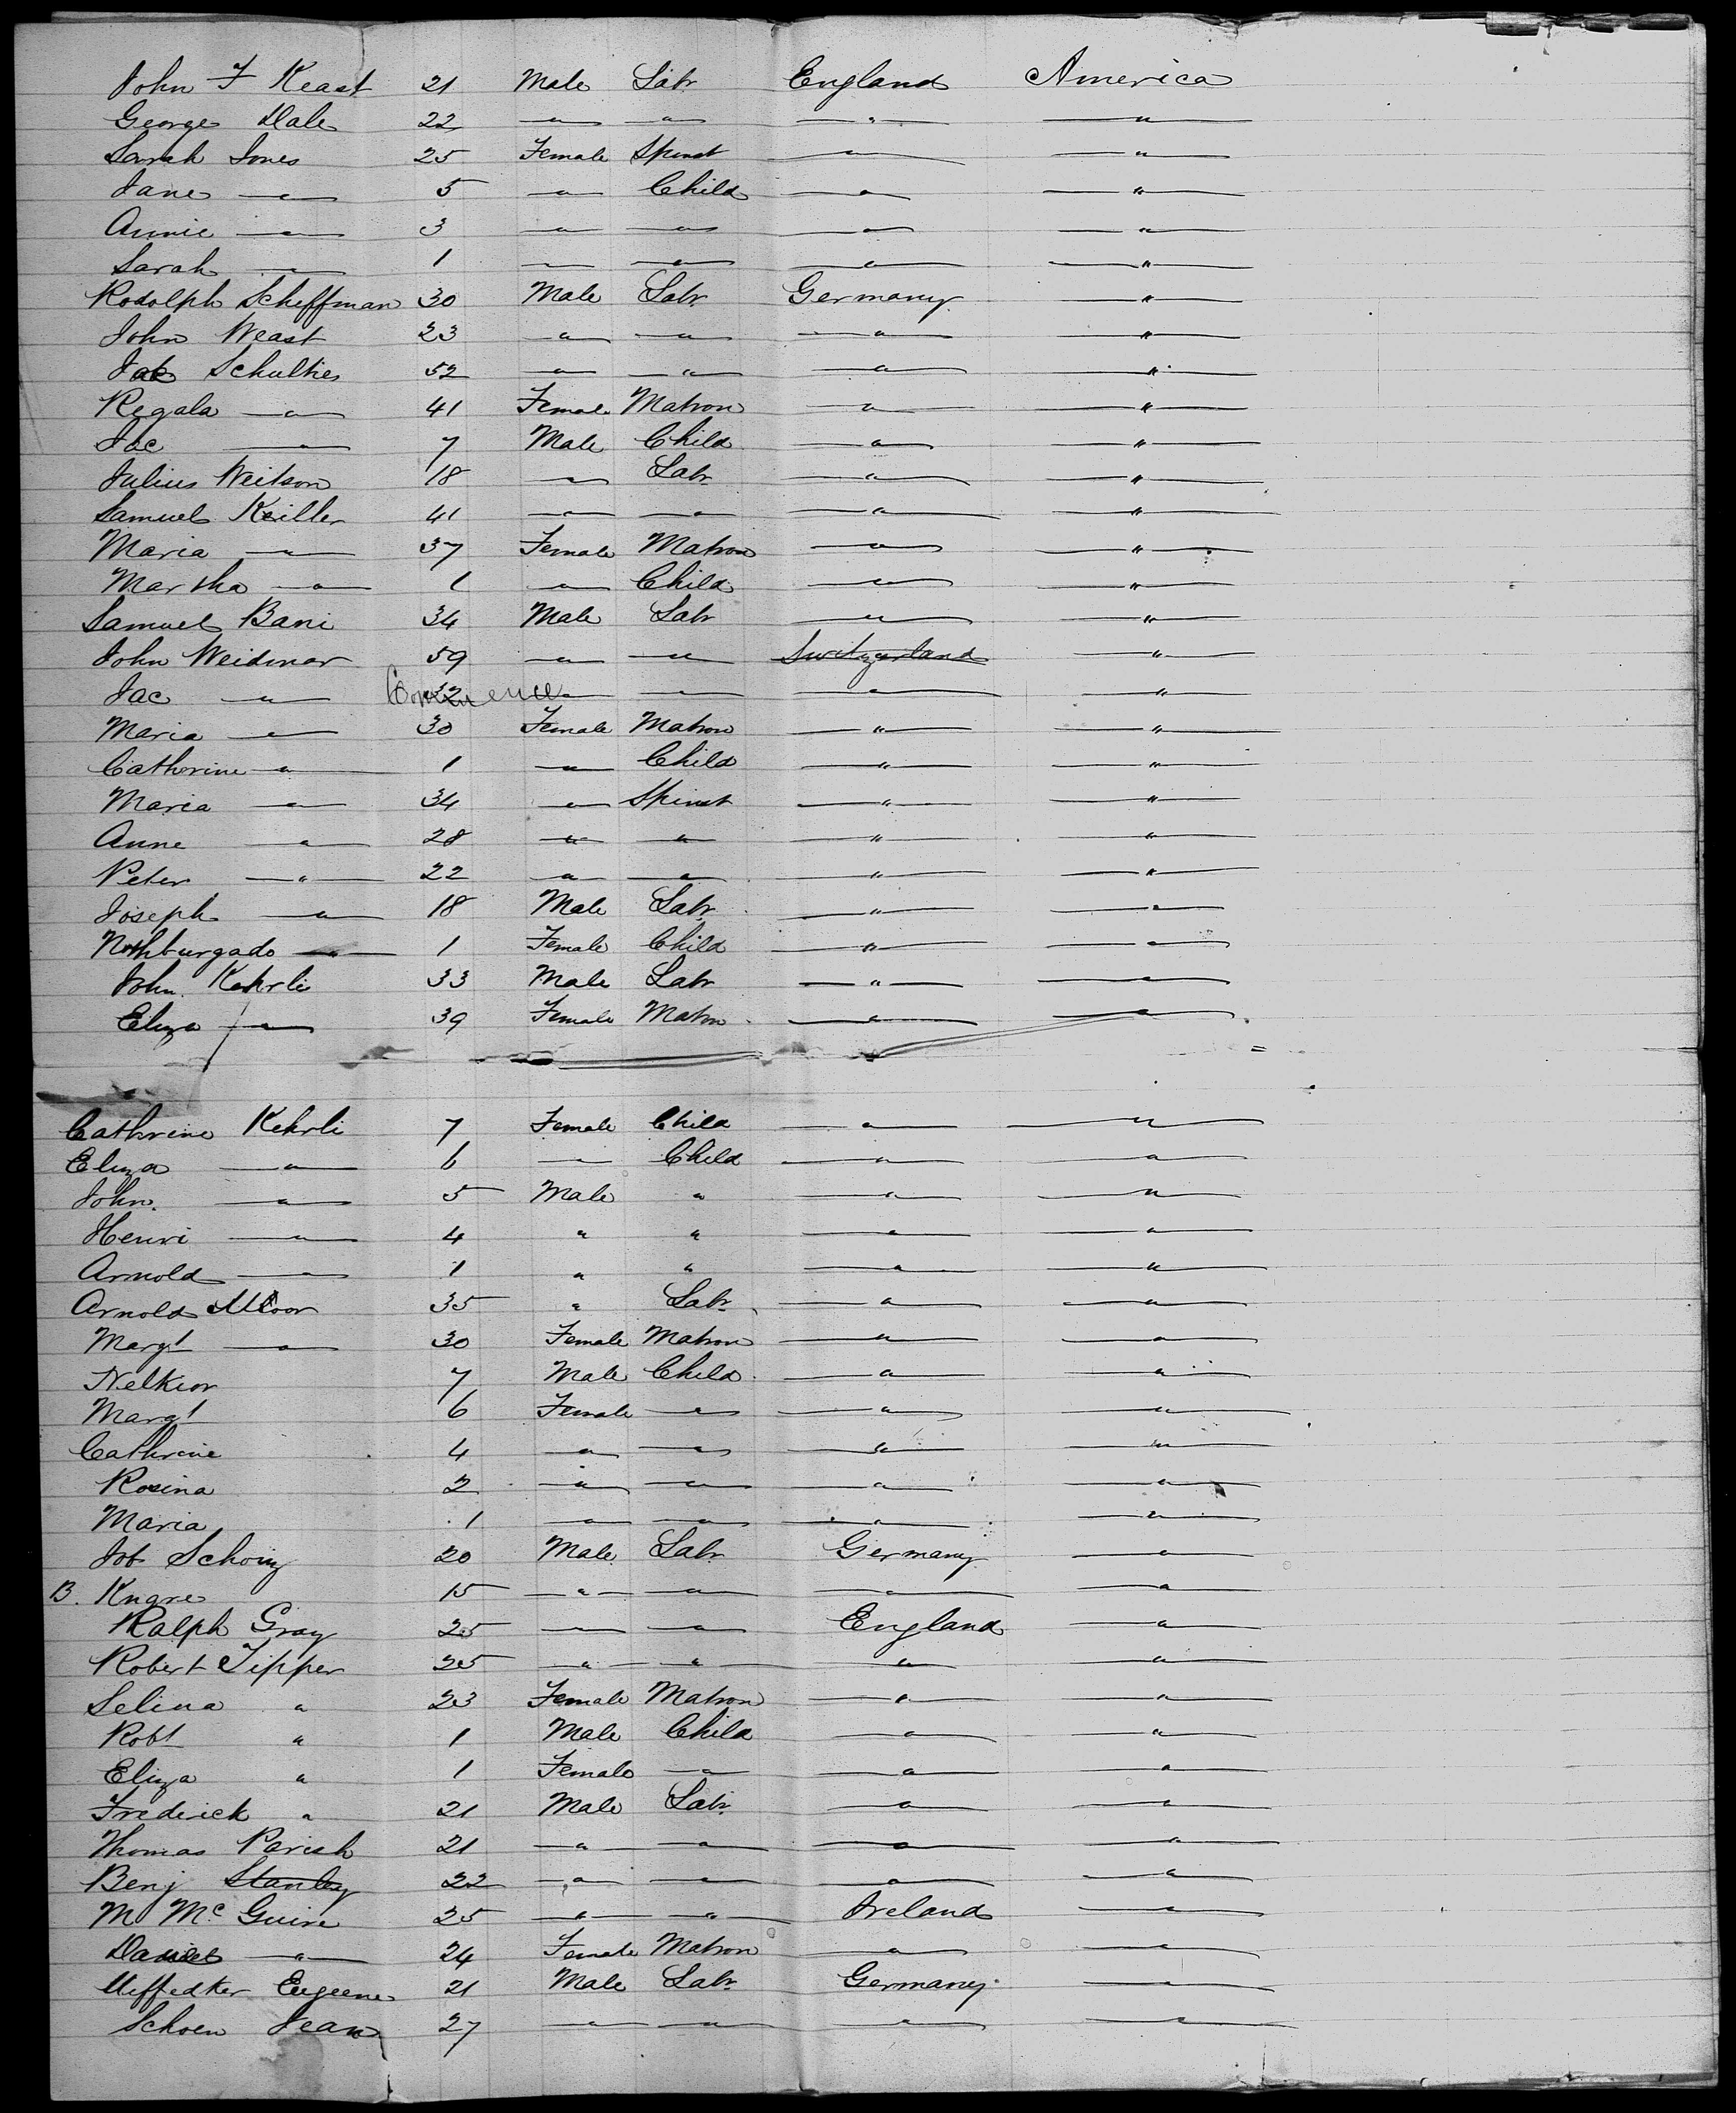 John F Keast 21 Male Labr England America
George Dale 22 " " " "
Sarah Jones 25 Female Spinst " "
Jane " 5 " Child " "
Annie " 3 " " " "
Sarah " 1 " " " "
Rodolph Scheffman 30 Male Labr Germany "
John Weast 23 " " " "
Schulties 52 " " " "
Regala " 41 Female Matron " "
Jac " 7 Male Child " "
Julius Weitson 18 " Labr " "
Samuel Keiller 41 " " " "
Maria " 37 Female Matron " "
Martha " 1 " Child " "
Samuel Bani 34 Male Labr " "
John Weidmar 59 " " Switzerland "
Jac " 32 " " " "
Maria " 30 Female Matron " "
Catherine " 1 " Child " "
Maria " 34 " Spinst " "
Anne " 28 " " " "
Peter " 22 " " " "
Joseph " 18 Male Labr " "
" 1 Female Child " "
John Kehrli 33 Male Labr " "
Eliza " 39 Female Matrn " "
Cathrine Kehrli 7 Female Child " "
Eliza " 6 " Child " "
John. " 5 Male " " "
Henri " 4 " " " "
Arnold " 1 " " " "
Arnold Moor 35 " Labr " "
Margt " 30 Female Matron " "
Nelkior 7 Male Child " "
Margt 6 Female " " "
Cathrine 4 " " " "
Rosina 2 " " " "
Maria 1 " " " "
Job 20 Male Labr Germany "
B. Kngre 15 " " " "
Ralph Gray 25 " " England "
Robert Tipper 25 " " " "
Selina " 23 Female Matron " "
Robt " 1 Male Child " "
Eliza " 1 Female " " "
Frederick " 21 Male Labr " "
Thomas Parish 21 " " " "
Benj Stanley 22 " " " "
M McGuire 25 " " Ireland "
" 24 Female Matron " "
Eugeene 21 Male Labr Germany "
Schoen Jean 27 " " " "